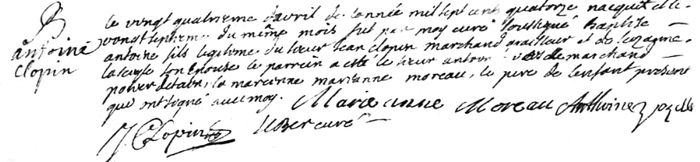 B
antoine
Clopin
le vingt quatrieme davril de lannée mil sept cent quatorze nacquit et le
vingt septieme du même mois fut par moy curé soussigné baptisé
antoine fils legitime du sieur jean clopin marchand et de
son epouse le parrein a été le sieur antoine marchand
la marenne marianne moreau, le pere de lenfant present
qui ont signé avec moy. Marie anne Moreau Anthoine
J Clopin curé